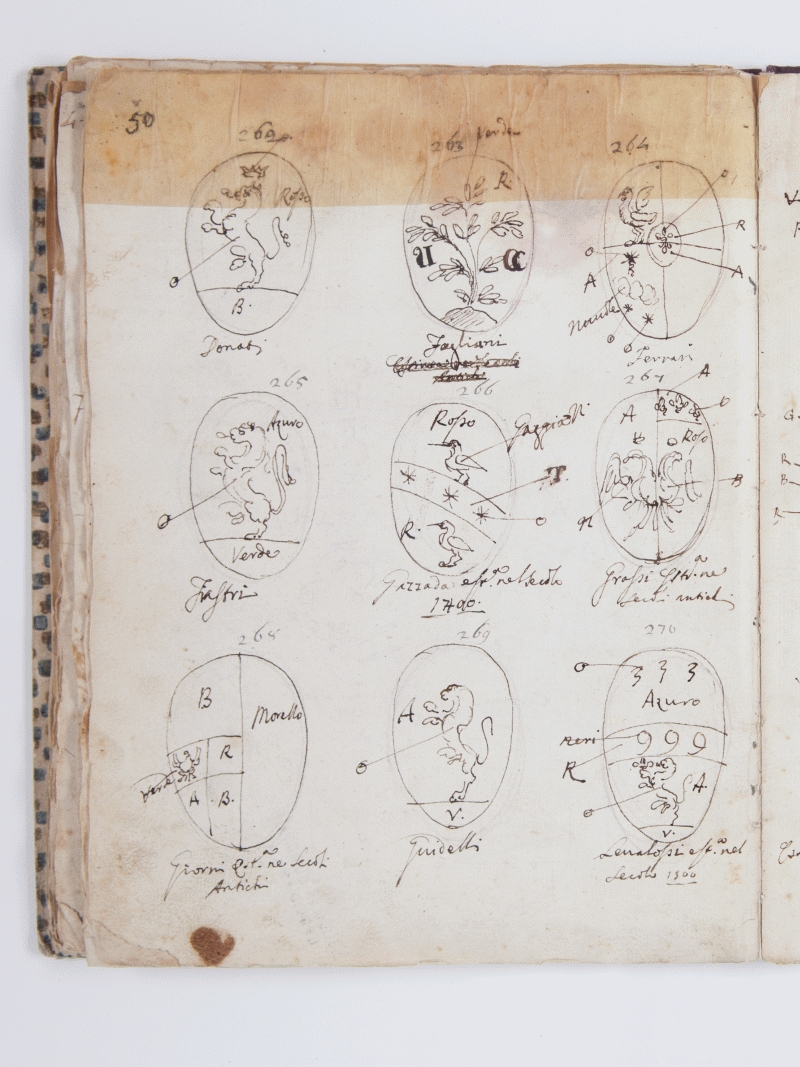 50
262
Rosso
O
B.
Donati
263
Verde
R.
Fagliani
264
O
R
A
O
A
O
Ferrari
265
Azuro
O
Verde
Fiastri
266
Rosso
R.
O
Gazzada est.ª nel secolo
1400.
267
A
O
A
Roso
B
N
Grassi Est.ª ne
Secoli antichi
268
B
Morello
R
Verde
A
B.
Giorni Est.ª ne Secoli
Antichi
269
A
O
V.
Guidelli
270
O
3 3 3
Azuro
neri
9 9 9
R
A.
O
V.
Levalossi est.ª nel
Secolo 1500